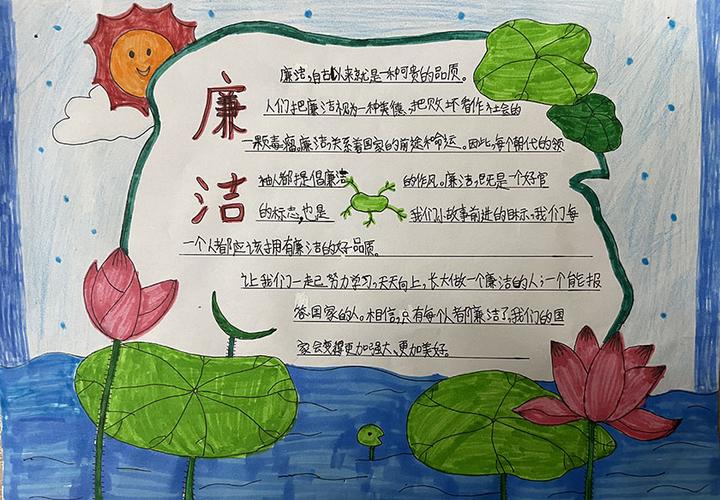 廉洁
廉洁,自古以来就是一种可贵的品质。
人们把廉洁视为一种美德,把败坏看作社会的
一颗毒瘤。廉洁,关系着国家的前途和命运。因此,每个朝代的领
袖人都提倡廉洁的作风。廉洁,既是一个好官
的标志,也是我们小故事前进的目示,我们每
一个人都应该拥有廉洁的好品质。
让我们一起努力学习,天天向上,长大做一个廉洁的人;一个能报
答国家的人。相信,只有每个人都廉洁了,我们的国
家会变得更加强大、更加美好。